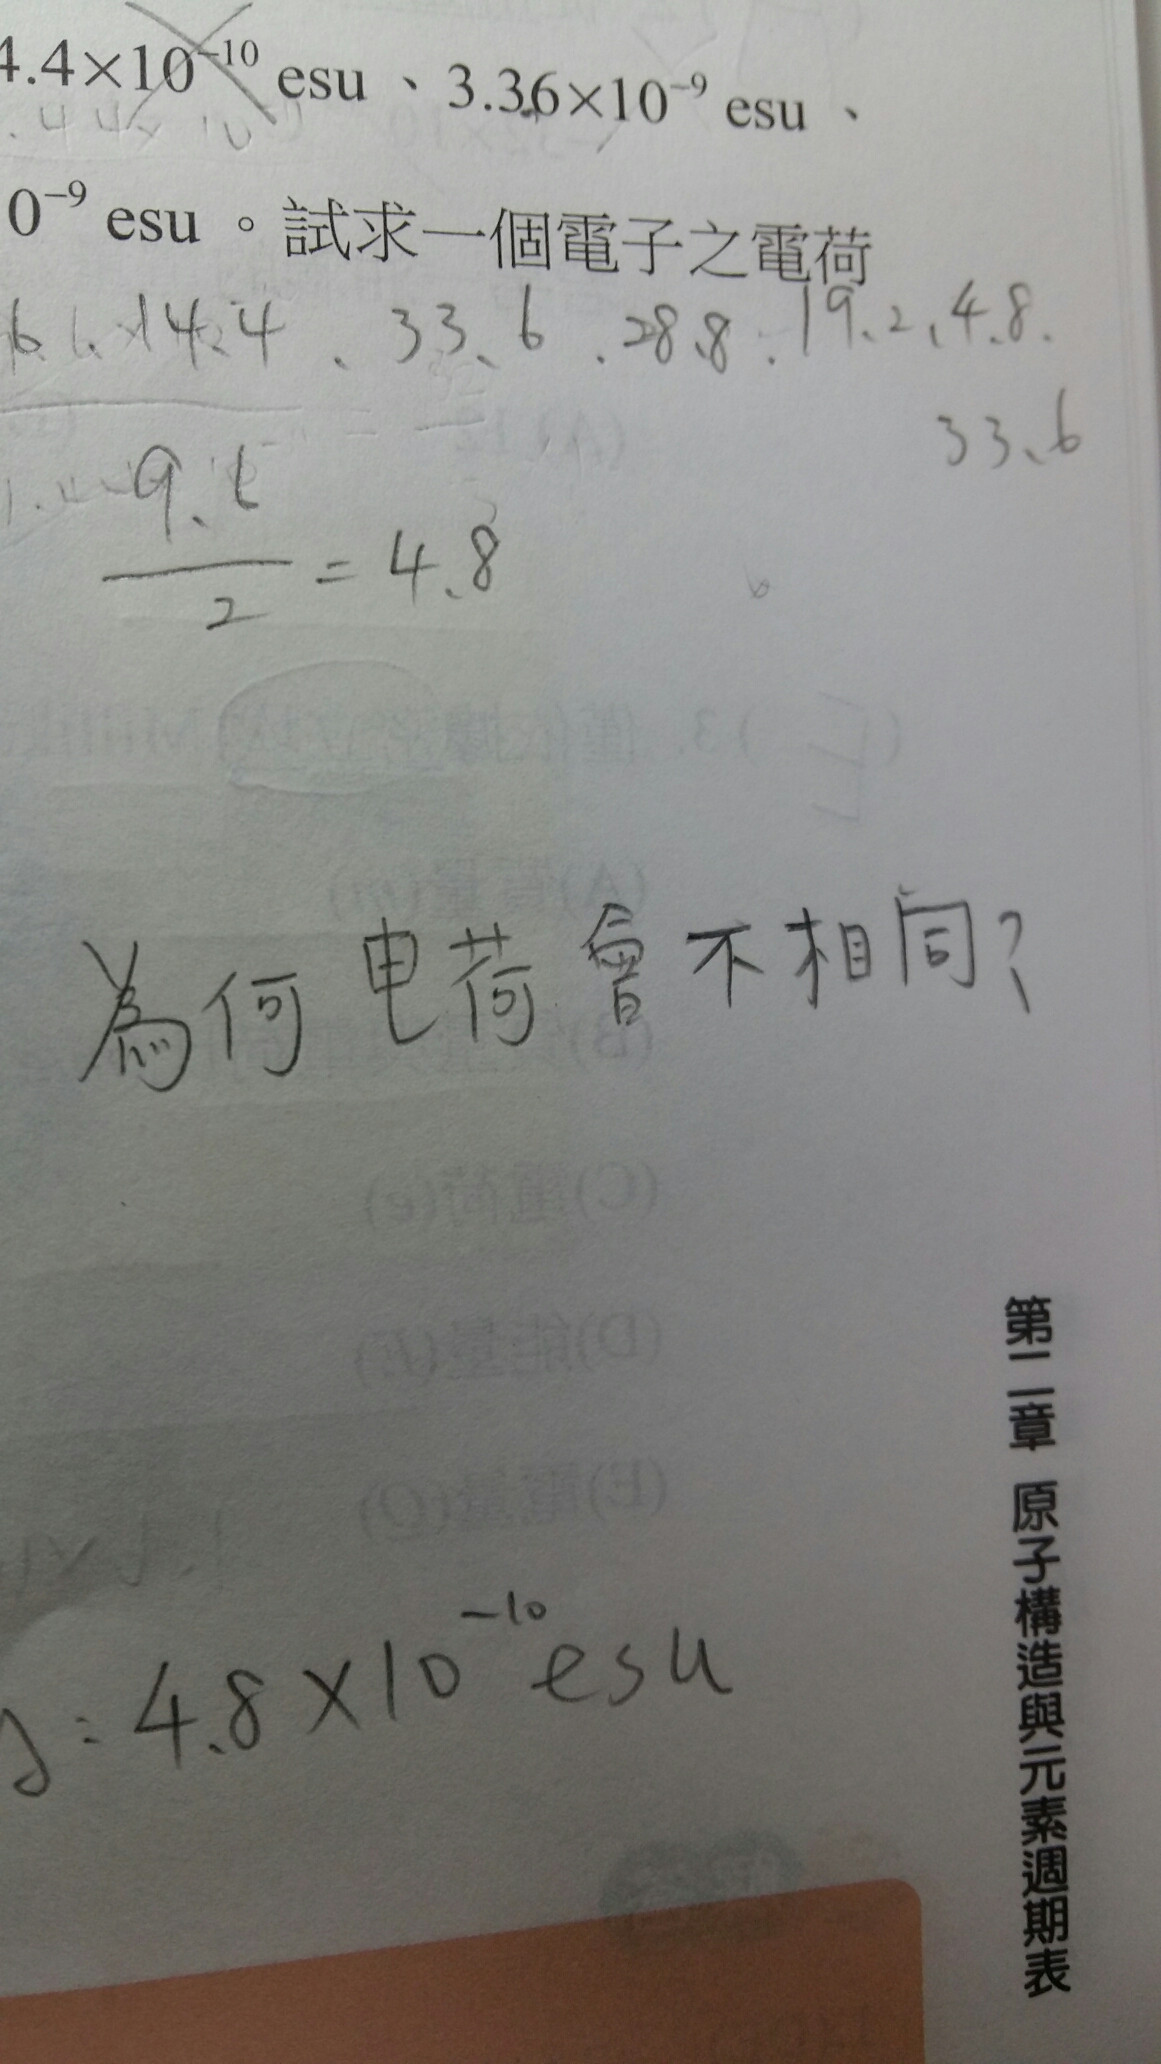 4.4×10⁻¹⁰ esu、3.36×10⁻⁹ esu、
0⁻⁹ esu。試求一個電子之電荷
14.4、33.6、28.8、19.2、4.8、
33.6
9.6
2
= 4.8
為何电荷會不相同?
: 4.8×10⁻¹⁰ esu
第二章 原子構造與元素週期表